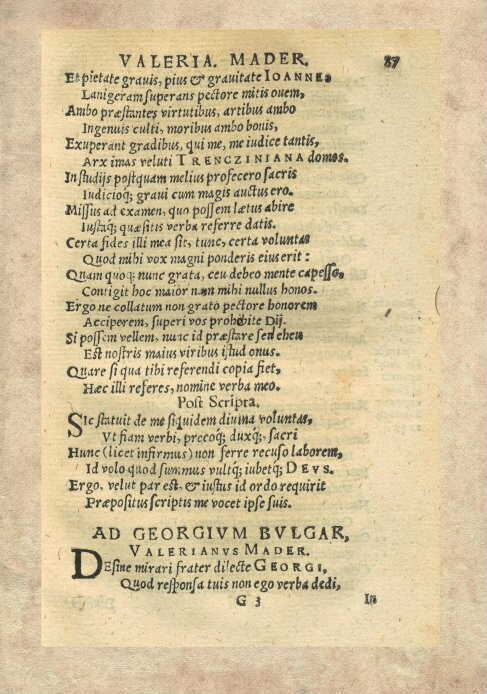 VALERIA. MADER. 87
Et pietate grauis, pius & grauitate IOANNES
Lanigeram superans pectore mitis ouem,
Ambo præstantes virtutibus, artibus ambo
Ingenuis culti, moribus ambo bonis,
Exuperant gradibus, qui me, me iudice tantis,
Arx imas veluti TRENCZINIANA domos.
In studijs postquam melius profecero sacris
Iudicioq; graui cum magis auctus ero.
Missus ad examen, quo possem lætus abire
Iustaq; quæsitis verba referre datis.
Certa fides illi mea sit, tunc, certa voluntas
Quod mihi vox magni ponderis eius erit:
Quam quoq; nunc grata, ceu debeo mente capesso,
Contigit hoc maior non mihi nullus honos.
Ergo ne collatum non grato pectore honorem
Acciperem, superi vos prohibite Dij.
Si possem vellem, nunc id præstare sed eheu
Est nostris maius viribus istud onus.
Quare si qua tibi referendi copia fiet,
Hæc illi referes, nomine verba meo.
Post Scripta.
Sic statuit de me siquidem diuina voluntas,
Vt fiam verbi, precoq; duxq; sacri
Hunc (licet infirmus) non ferre recuso laborem,
Id volo quod summus vultq; iubetq; DEVS.
Ergo, velut par est, & iustus id ordo requirit
Præpositus scriptis me vocet ipse suis.
AD GEORGIVM BVLGAR,
VALERIANVS MADER.
DEsine mirari frater dilecte GEORGI,
Quod responsa tuis non ego verba dedi,
G 3 In